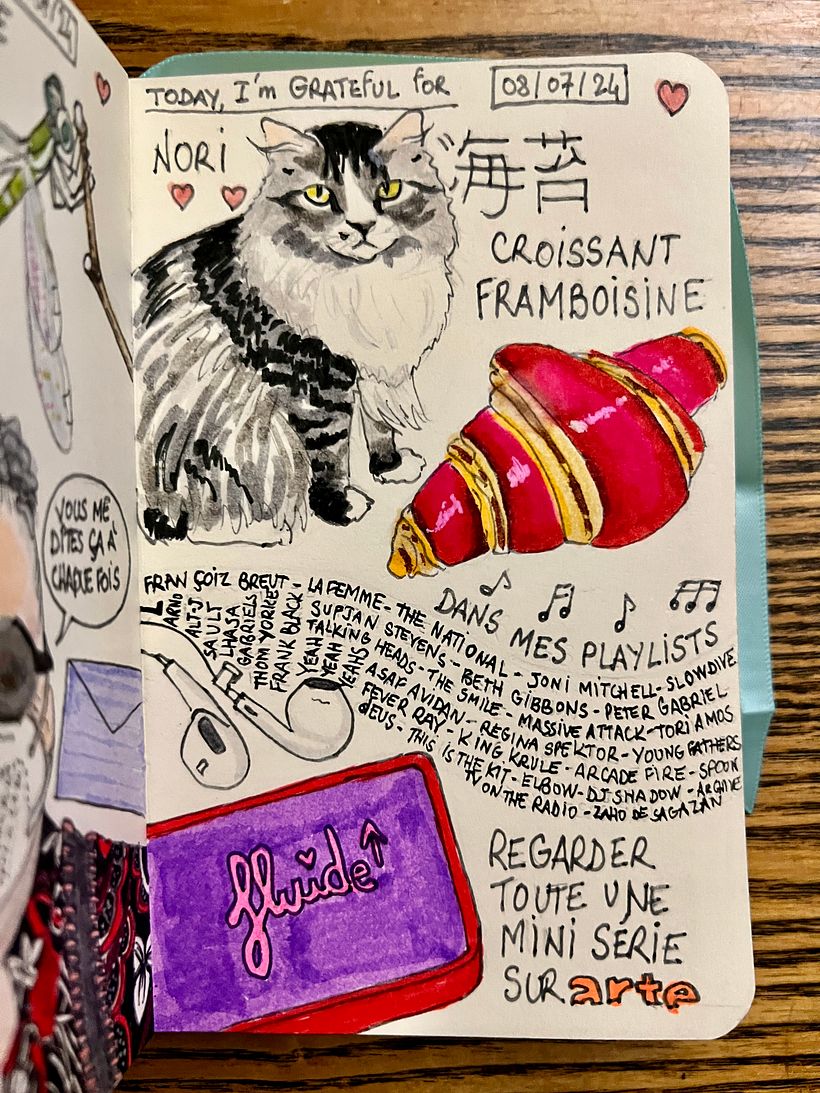 TODAY, I'm GRATEFUL FOR
08/07/24
NORI
海苔
CROISSANT
FRAMBOISINE
VOUS ME
DITES ÇA À
CHAQUE FOIS
DANS MES PLAYLISTS
FRANÇOIZ BREUT - LA FEMME - THE NATIONAL - JONI MITCHELL - SLOWDIVE
SUFJAN STEVENS - BETH GIBBONS - PETER GABRIEL
TALKING HEADS - THE SMILE - MASSIVE ATTACK - TORI AMOS
ASAF AVIDAN - REGINA SPEKTOR - YOUNG FATHERS
FEVER RAY - KING KRULE - ARCADE FIRE - SPOON
dEUS - THIS IS THE KIT - ELBOW - DJ SHADOW - ARCHIVE
TV ON THE RADIO - ZAHO DE SAGAZAN
ARNO
ALT-J
SAULT
LHASA
GABRIELS
THOM YORKE
FRANK BLACK
YEAH
YEAH
YEAHS
fluide
REGARDER
TOUTE UNE
MINI SÉRIE
SUR arte